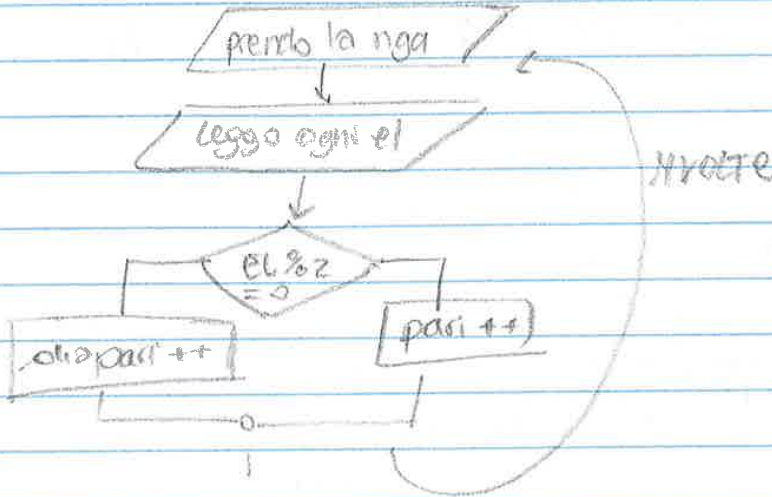 prendo la riga
leggo ogni el
N VOLTE
EL%2
= 0
dispari ++
pari ++